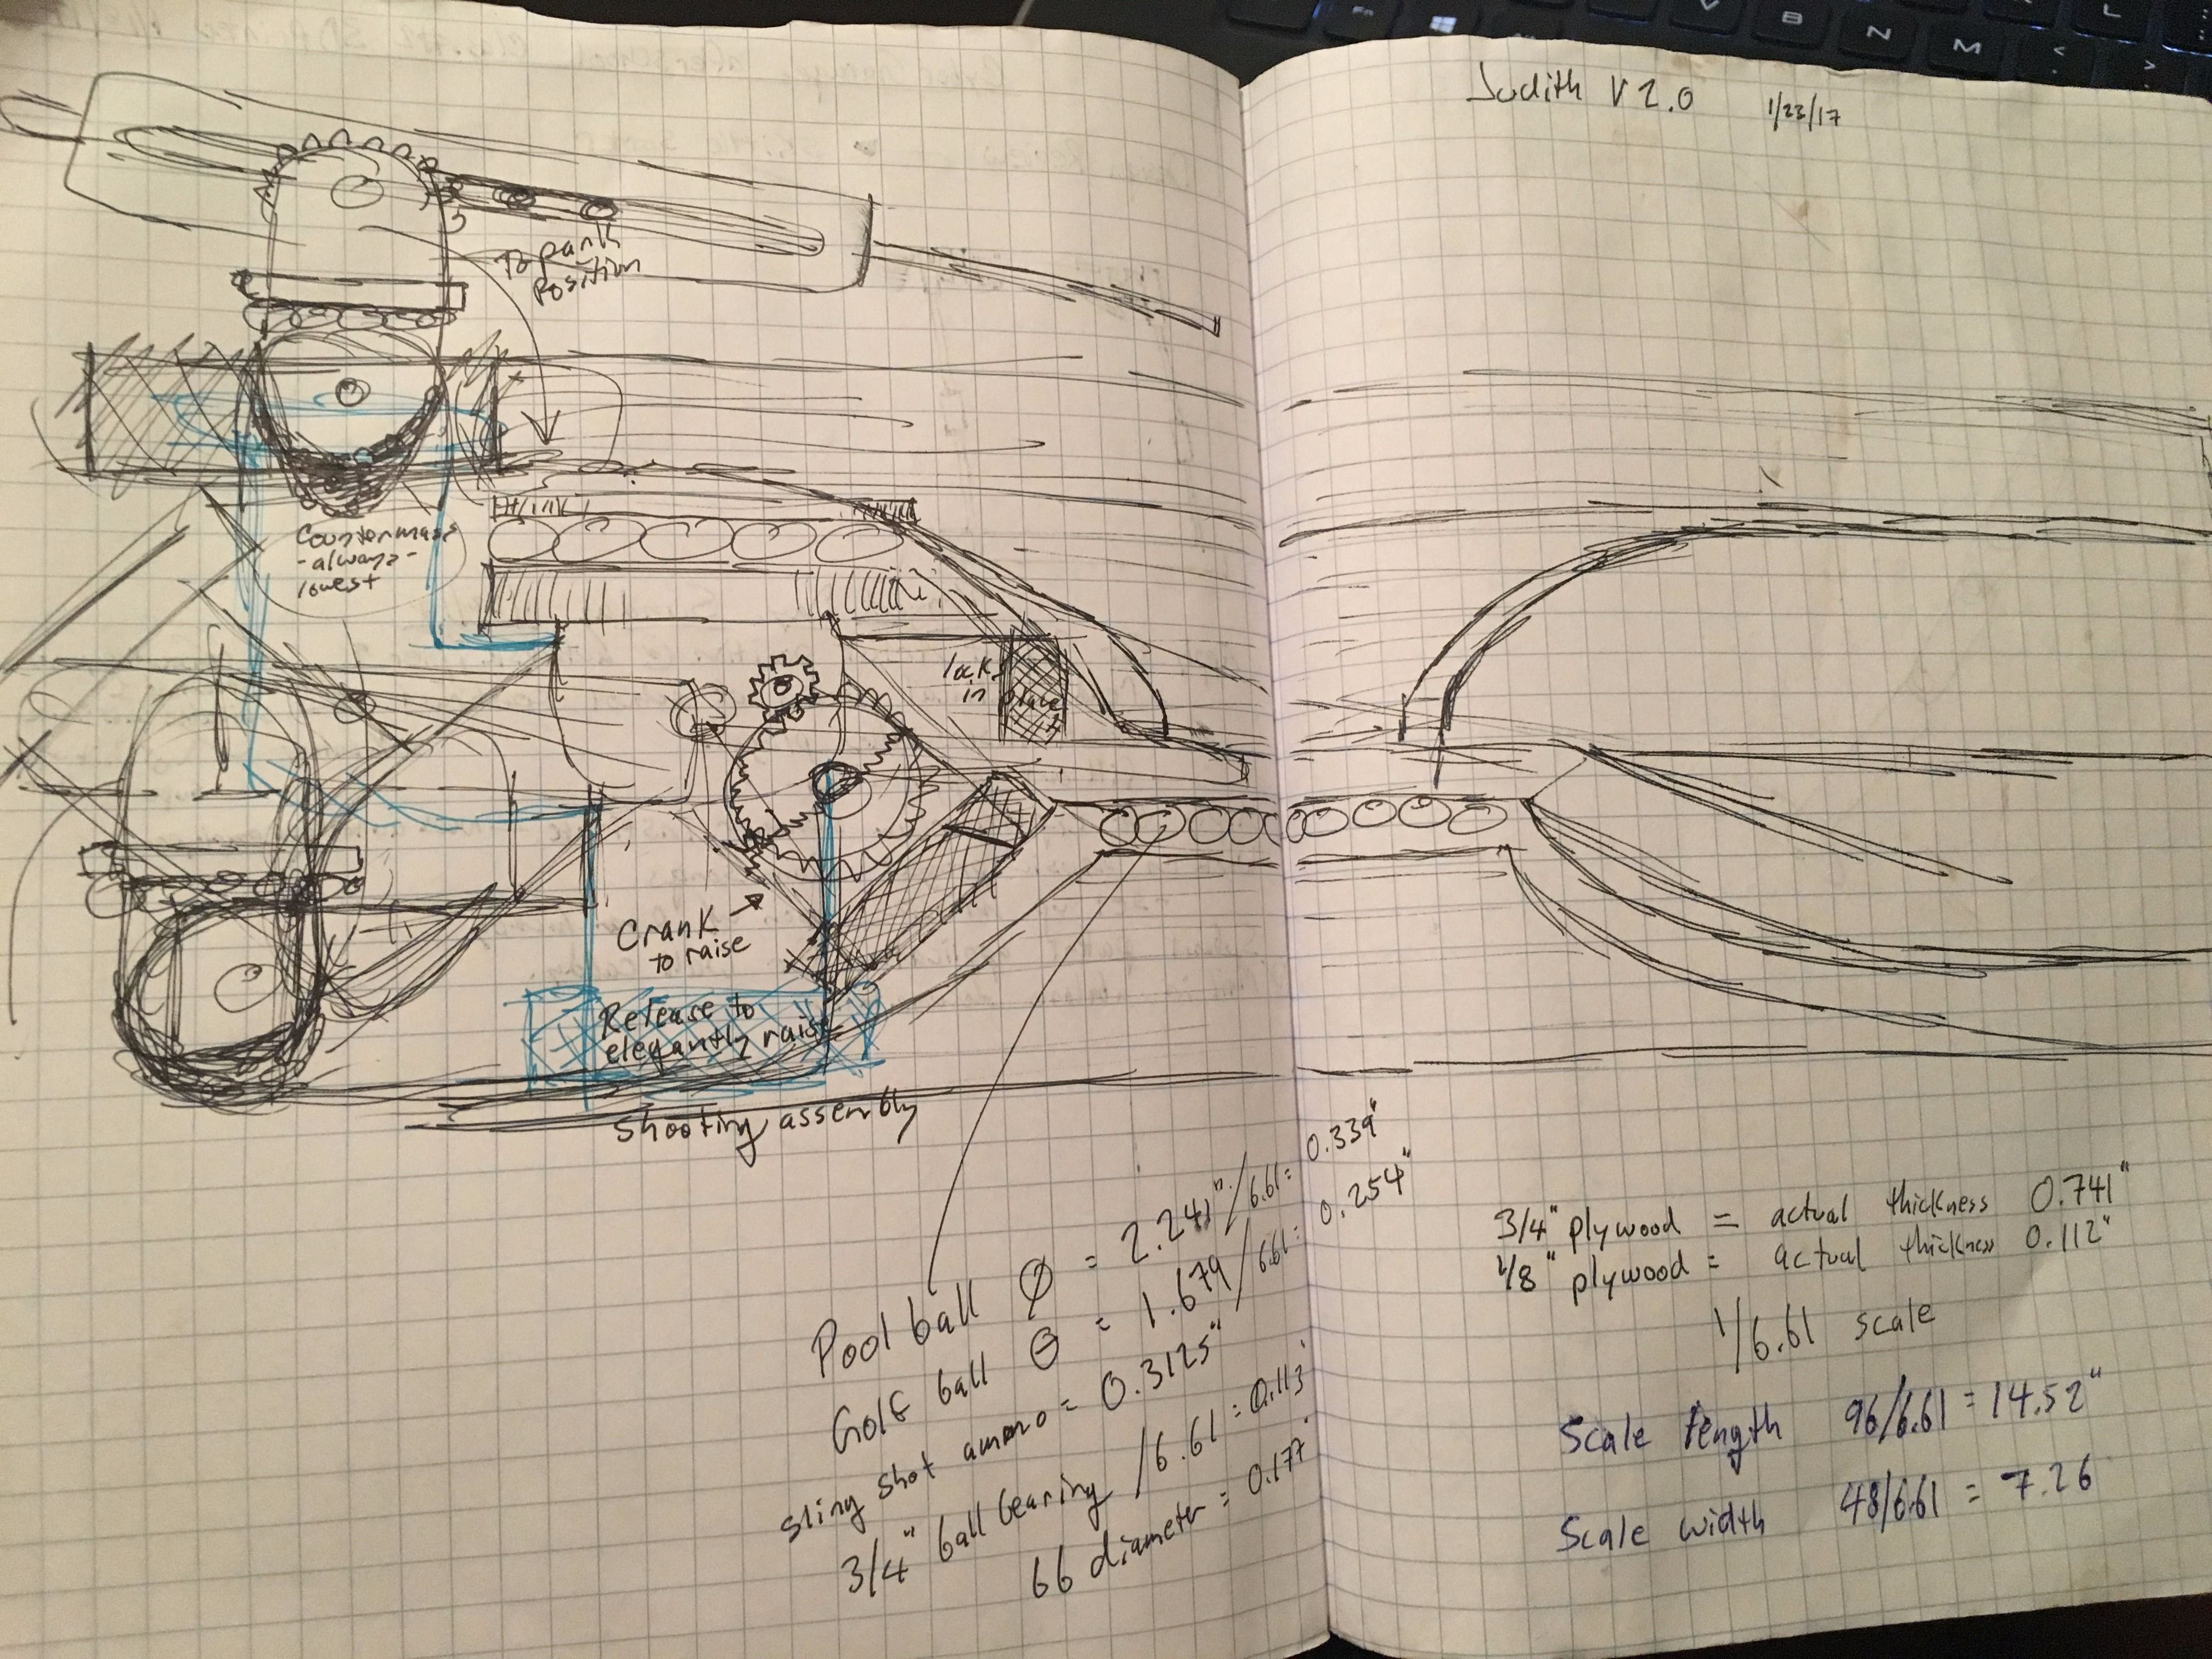 Judith V 2.0 1/23/17
To park
Position
Countermass
-always-
lowest
locks
in
place
Crank
to raise
Release to
elegantly raise
Shooting assembly
Pool ball ∅ = 2.241"/6.61= 0.339"
Golf ball ∅ = 1.679/6.61= 0.254"
sling shot ammo = 0.3125"
3/4" ball bearing /6.61 = 0.113"
bb diameter = 0.177"
3/4" plywood = actual thickness 0.741"
1/8" plywood = actual thickness 0.112"
1/6.61 scale
Scale length 96/6.61 = 14.52"
Scale width 48/6.61 = 7.26
Fn
V
B
N
M
L
<
>